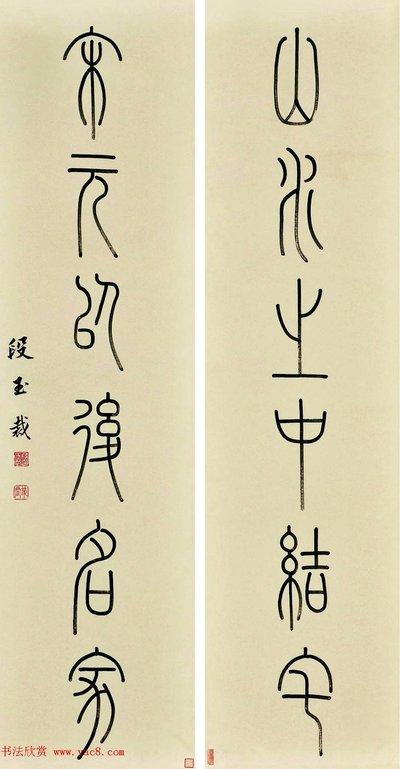 山水之中結宅
宋元以後名家
段玉裁
书法欣赏 www.yac8.com